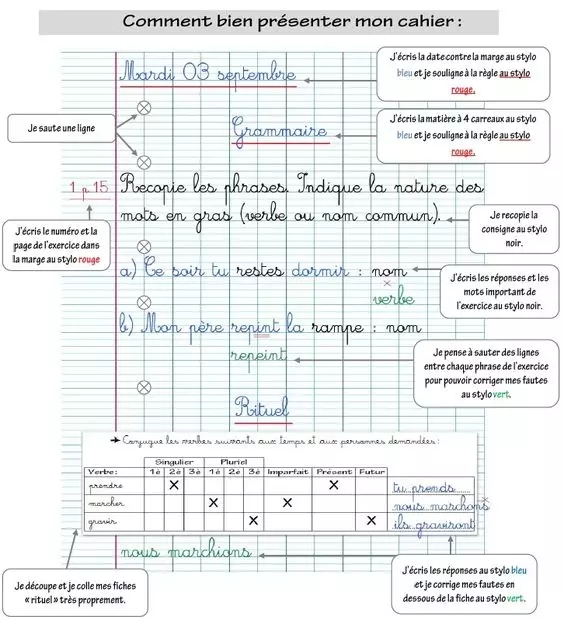 Comment bien présenter mon cahier :
Mardi 03 septembre
J'écris la date contre la marge au stylo
bleu et je souligne à la règle au stylo
rouge.
Je saute une ligne
Grammaire
J'écris la matière à 4 carreaux au stylo
bleu et je souligne à la règle au stylo
rouge.
1 p 15
Recopie les phrases. Indique la nature des
mots en gras (verbe ou nom commun).
Je recopie la
consigne au stylo
noir.
J'écris le numéro et la
page de l'exercice dans
la marge au stylo rouge
a) Ce soir tu restes dormir : nom
verbe
J'écris les réponses et les
mots important de
l'exercice au stylo noir.
b) Mon père repint la rampe : nom
repeint
Je pense à sauter des lignes
entre chaque phrase de l'exercice
pour pouvoir corriger mes fautes
au stylo vert.
Rituel
➔ Conjugue les verbes suivants aux temps et aux personnes demandées :
Singulier Pluriel
Verbe : 1è 2è 3è 1è 2è 3è Imparfait Présent Futur
prendre X X tu prends
marcher X X nous marchons x
gravir X X ils graviront
nous marchions
Je découpe et je colle mes fiches
« rituel » très proprement.
J'écris les réponses au stylo bleu
et je corrige mes fautes en
dessous de la fiche au stylo vert.